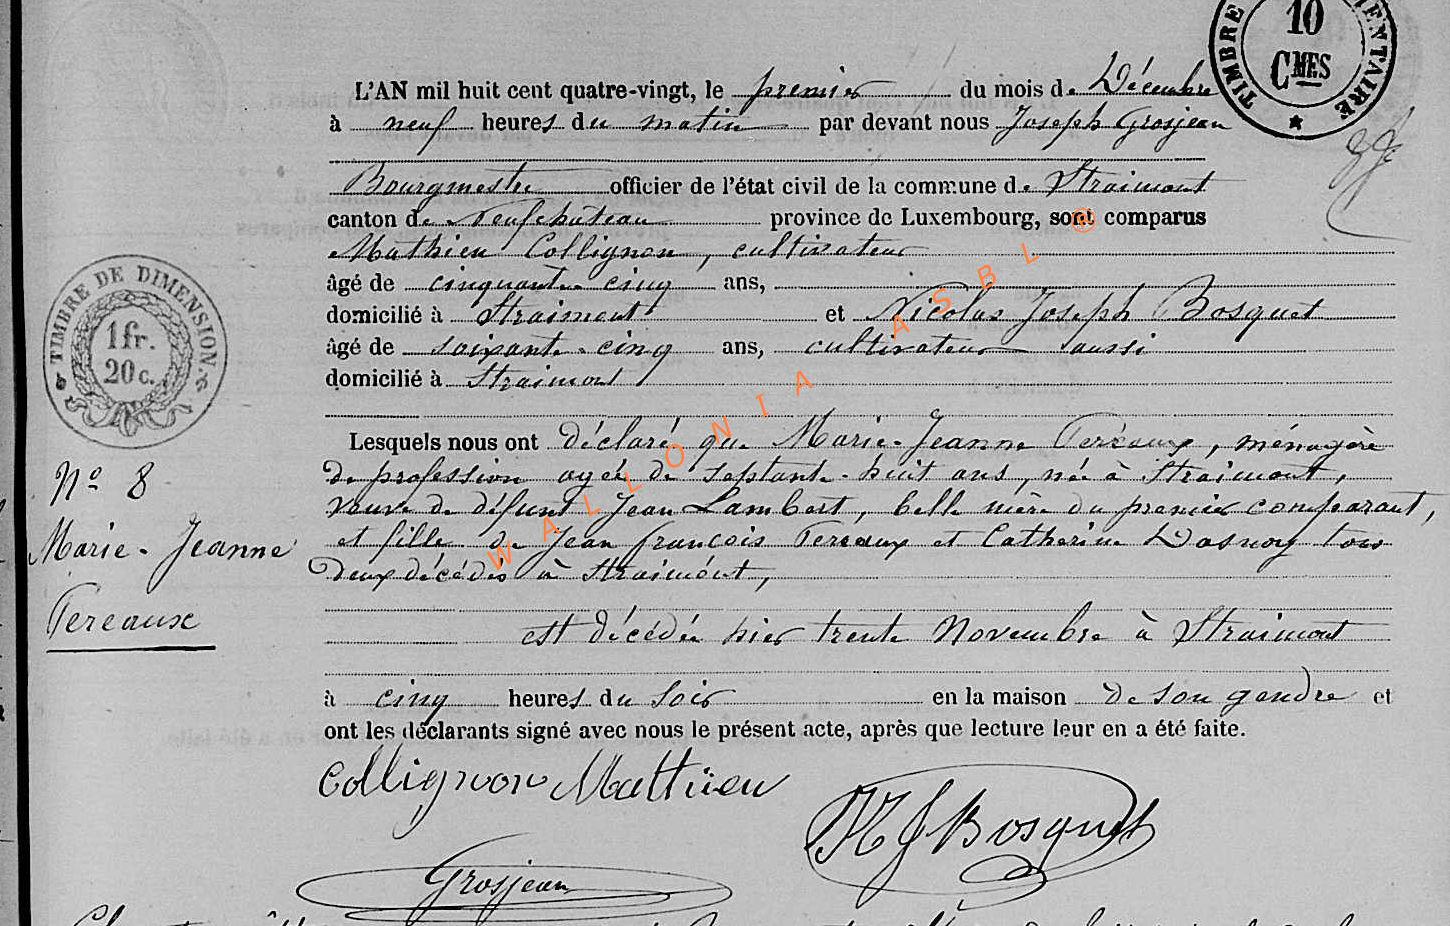 TIMBRE
10
CMES
L'AN mil huit cent quatre-vingt, le premier du mois de Décembre
à neuf heures du matin par devant nous Joseph Grosjean
Bourgmestre officier de l'état civil de la commune de Straimont
canton de Neufchâteau province de Luxembourg, sont comparus
Mathieu Collignon, cultivateur
âgé de cinquante cinq ans,
domicilié à Straimont et Nicolas Joseph Bosquet
âgé de soixante-cinq ans, cultivateur aussi
domicilié à Straimont
TIMBRE DE DIMENSION.
1 fr.
20 c.
Lesquels nous ont déclaré que Marie-Jeanne Tereaux, ménagère
de profession agée de septante-huit ans, née à Straimont,
veuve de défunt Jean Lambert, belle mère du premier comparant,
et fille de Jean françois Tereaux et Catherine Dasnoy tous
deux décédés à Straimont,
est décédée hier trente Novembre à Straimont
à cinq heures du soir en la maison de son gendre et
ont les déclarants signé avec nous le présent acte, après que lecture leur en a été faite.
No 8
Marie-Jeanne
Tereaux
Collignon Mathieu
NJBosquet
Grosjean
WALLONIA ASBL ®